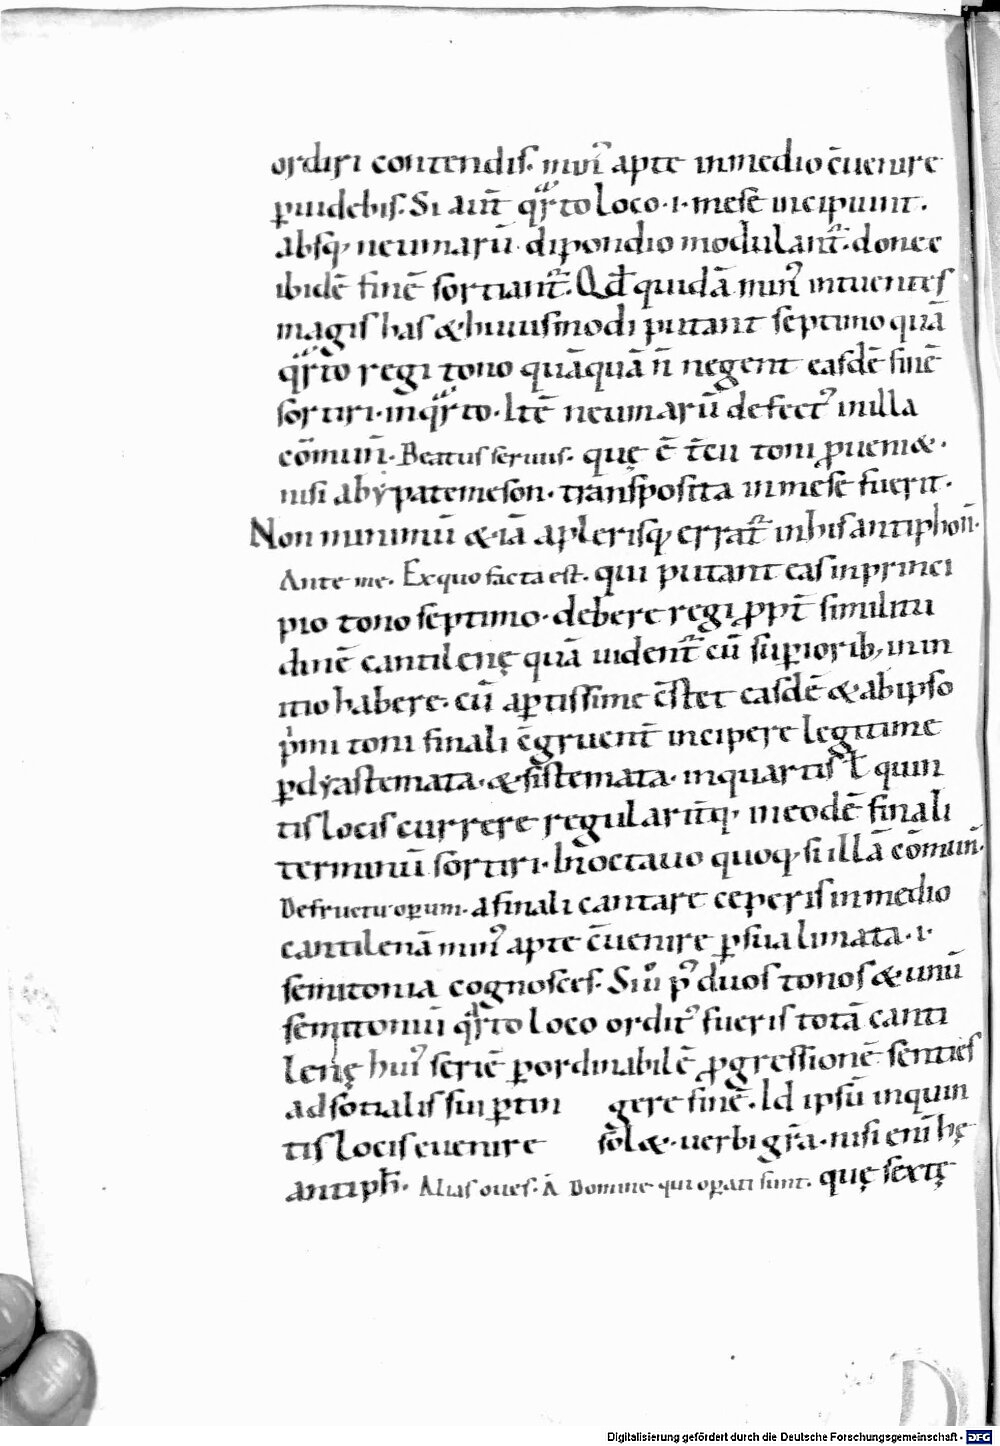 ordiri contendis. min᷒ apte inmedio c̄uenire
p̲uidebis. Si aut̄ qͣrto loco .i. mese incipiunt.
absq; neumarū dipondio modulant᷑. donec
ibidē finē sortiant᷑. Qđ quidā min᷒ intuentes
magis has & huiusmodi putant septimo quā
qͣrto regi tono quāquā n̄ negent easdē finē
sortiri. inqͣrto. Itē neumarū defect᷒ in illa
cōmun̄. Beatus seruus. quę ē t̄cii toni ꝓueni&.
nisi ab ẏpatemeson. transposita inmese fuerit.
Non minimū & iā a plerisq; errat᷑ in his antiphon̄.
Ante me. Ex quo facta est. qui putant eas in princi
pio tono septimo. debere regi ꝓpt̄ similitu
dinē cantilenę quā uident᷑ cū sup̲iorib; in in
itio habere. cū ap̲tissime c̄stet easdē & ab ipso
pͥmi toni finali c̄gruent̄ incipere legitime
p̲ dẏastemata. & sistemata. inquartis ł quin
tis locis currere regularit̄q; in eodē finali
terminū sortiri. In octauo quoq; si illā cōmun̄.
De fructu op̲um. a finali cantare ceperis in medio
cantilenā min᷒ apte c̄uenire p̲ sua limata .i.
semitonia cognosces. Siū p᷒ duos tonos & unū
semitoniū qͣrto loco ordit᷒ fueris totā canti
lenę hui᷒ seriē p̲ ordinabilē ꝓgressionē senties
ad sotialis sui p̲tin gere finē. Id ipsū inquin
tis locis euenire sol&. uerbi gr̄a. nisi eni᷒ hę
antiph̄. Alias oues. A᷒ Domine qui op̲ati sunt. quę sextę
Digitalisierung gefördert durch die Deutsche Forschungsgemeinschaft - DFG